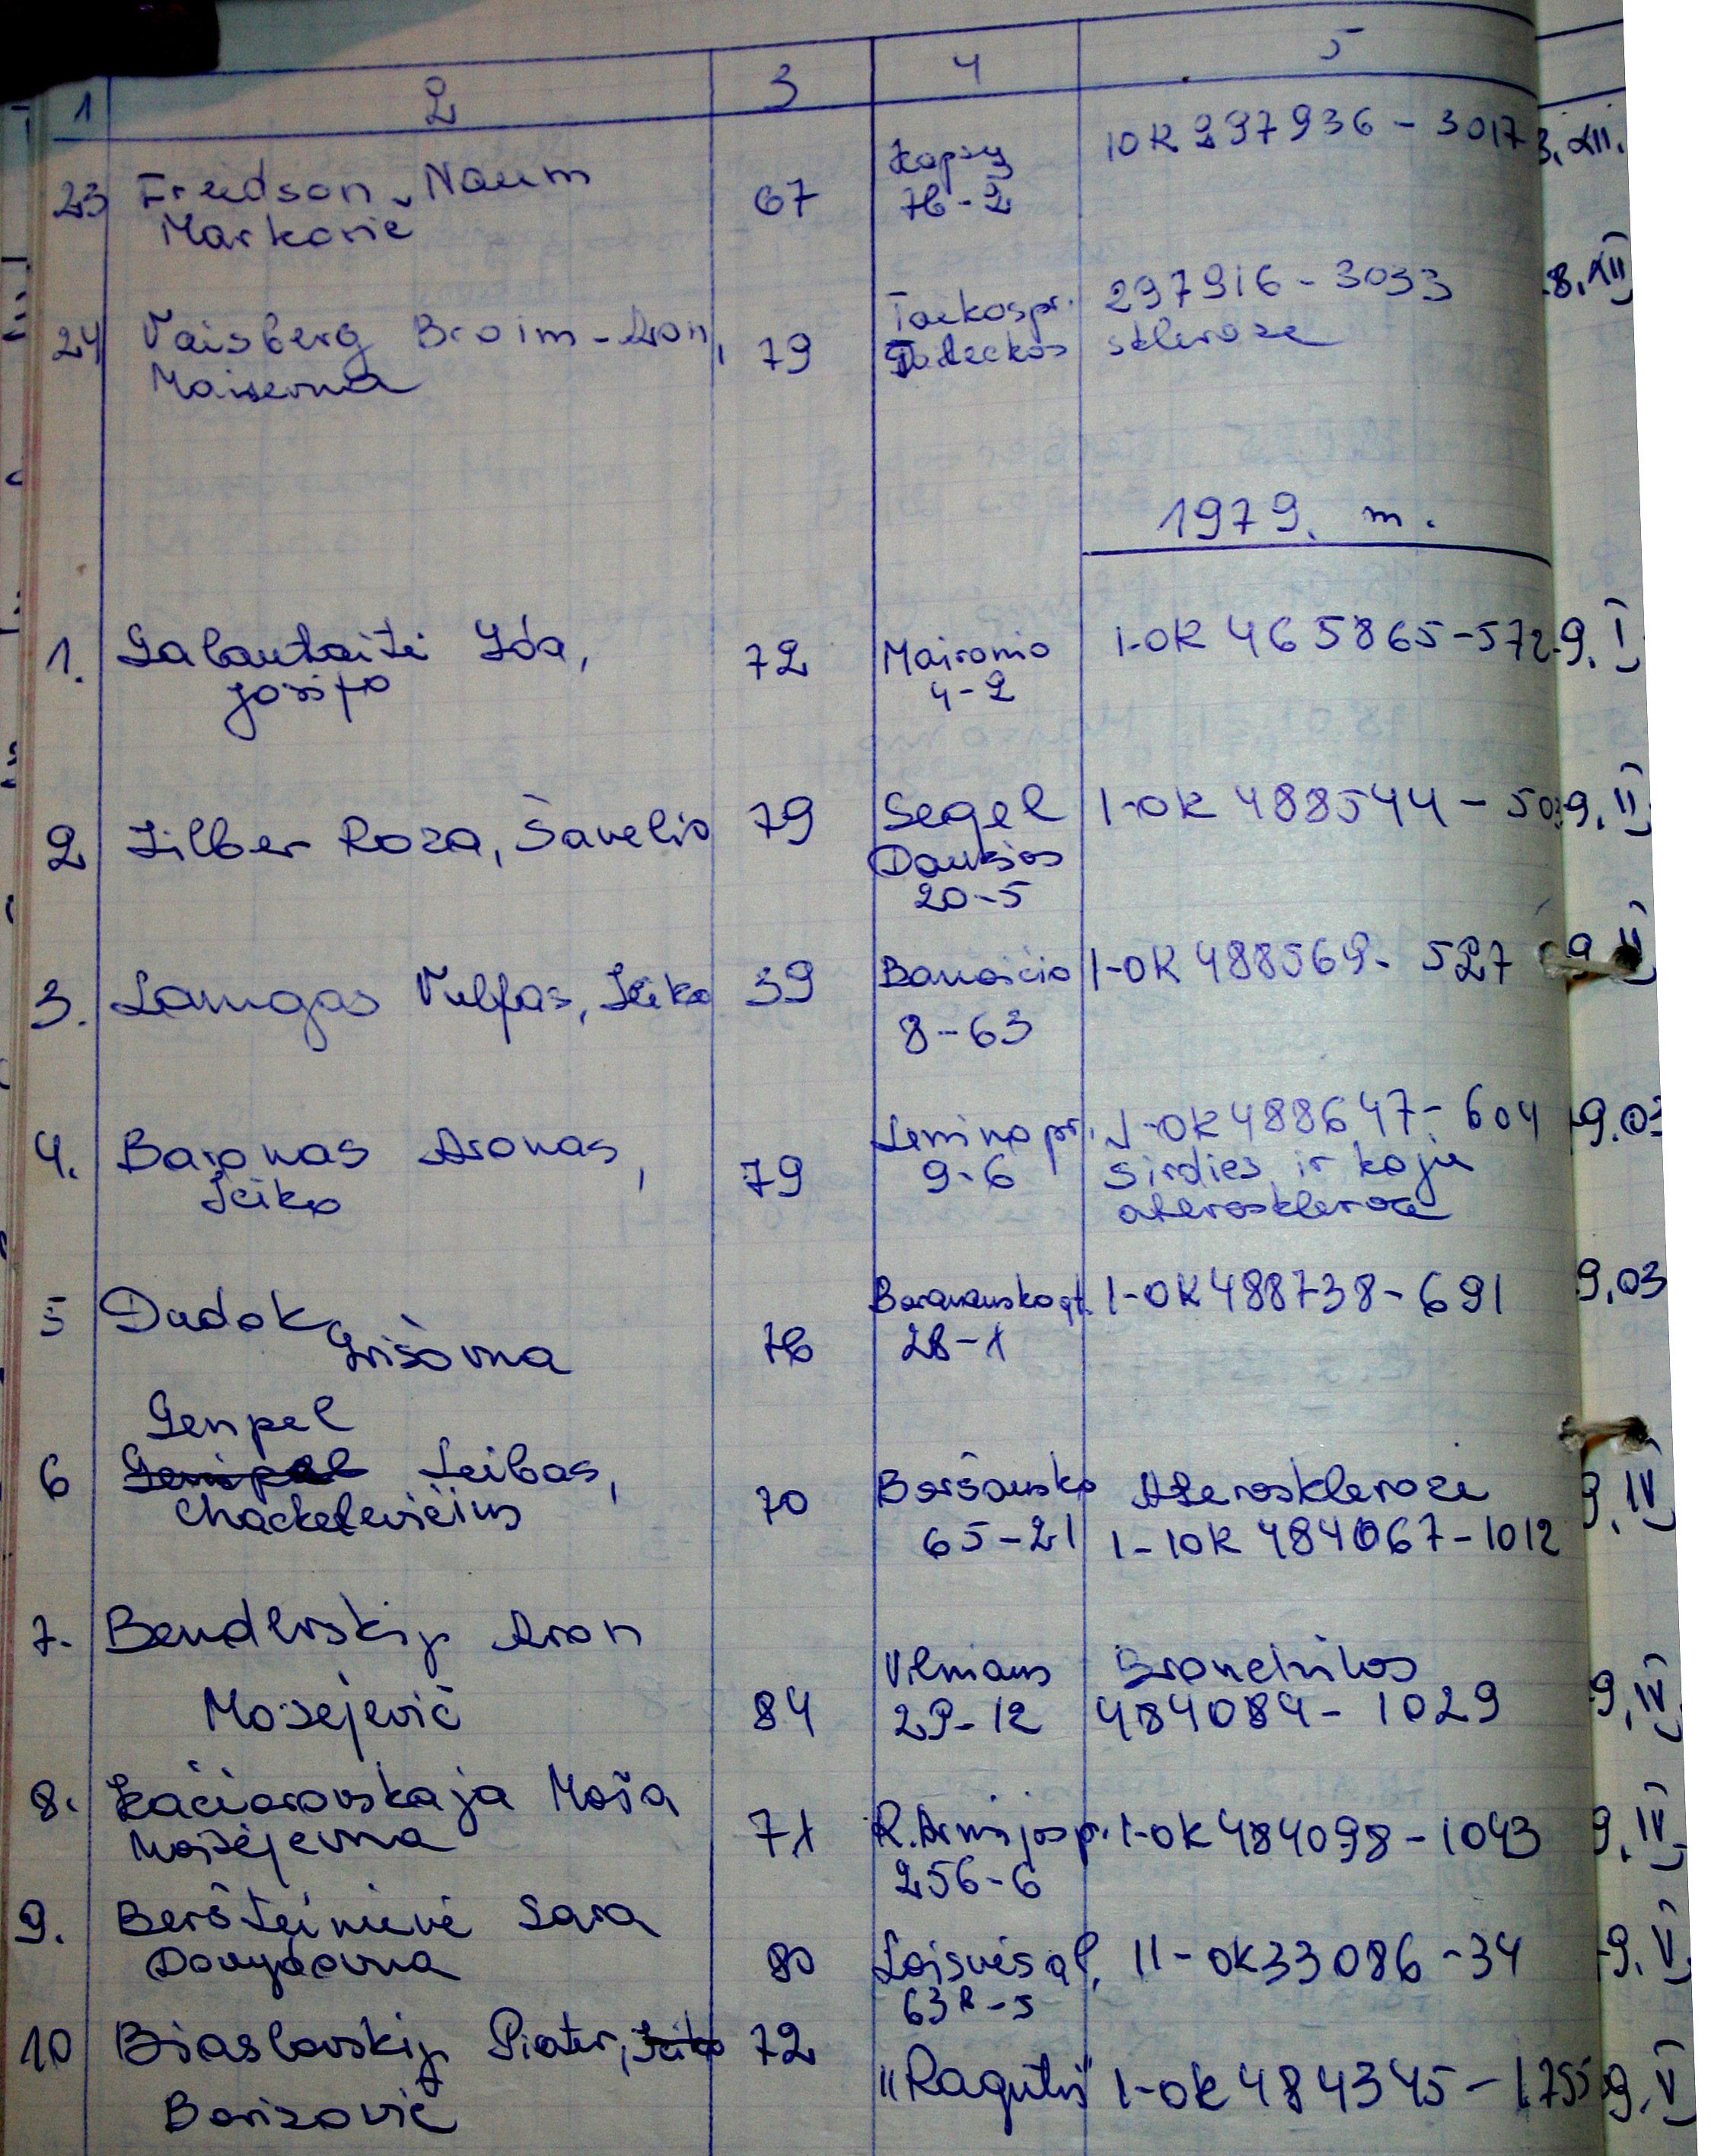 1 2 3 4 5
23 Freidson, Naum 67 Kapsų 10K 297936 - 3017 3. XII.
Markovič 76-2
24 Vaisberg Broim-Aron, 79 Taikos pr. 297916 - 3033 8. XII
Maiserna sklerozė
1979. m.
1. Galantaitė Ida, 72 Maironio 1-OK 465865-572 9. I
Josifo 4-2
2 Zilber Roza, Savelio 79 Segel 1-OK 488544 - 9. II
Daukšos
20-5
3. Langas Vulfas, Icikо 39 1-OK 488569- 527 9. II
8-63
4. Baronas Aronas, 79 Lenino pr. 1-OK 488647- 604 9.03
Iciko 9-6 Širdies ir kojų
aterosklerozė
5 Dudok 76 Baranausko gt. 1-OK 488738-691 9,03
Grišovna 28-1
Genpel
6 Leibas, 70 Baršausko Aterosklerozė 9. IV
Chackelevičius 65-21 1-10K 484067-1012
7. Benderskij Aron
Mosejevič 84 Vilniaus 29-12 484084- 1029 9. IV
8. Kačiarovskaja Maša 71 R. Armijos pr. 1-OK 484098-1043 9. IV
Moisejevna 256-6
9. Beršteinienė Sara 80 Laisvės al. 11-OK33086-34 9. V
Dovydovna 63 -5
10 Braslavskij Piater, 72 "Ragutis" 1-OK 484345- 1755 9. V
Borisovič